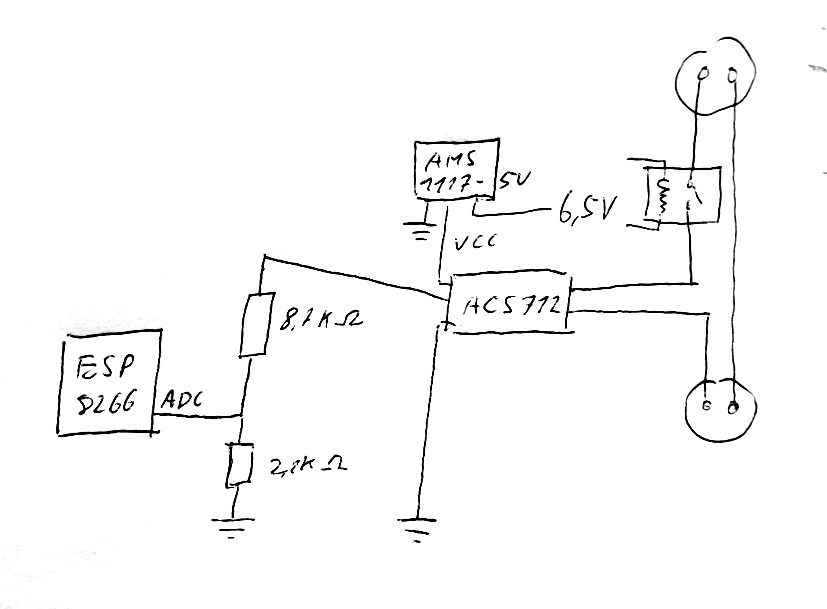 AMS
1117-5V
6,5V
VCC
ACS712
8,2KΩ
ESP
8266
ADC
2,2KΩ